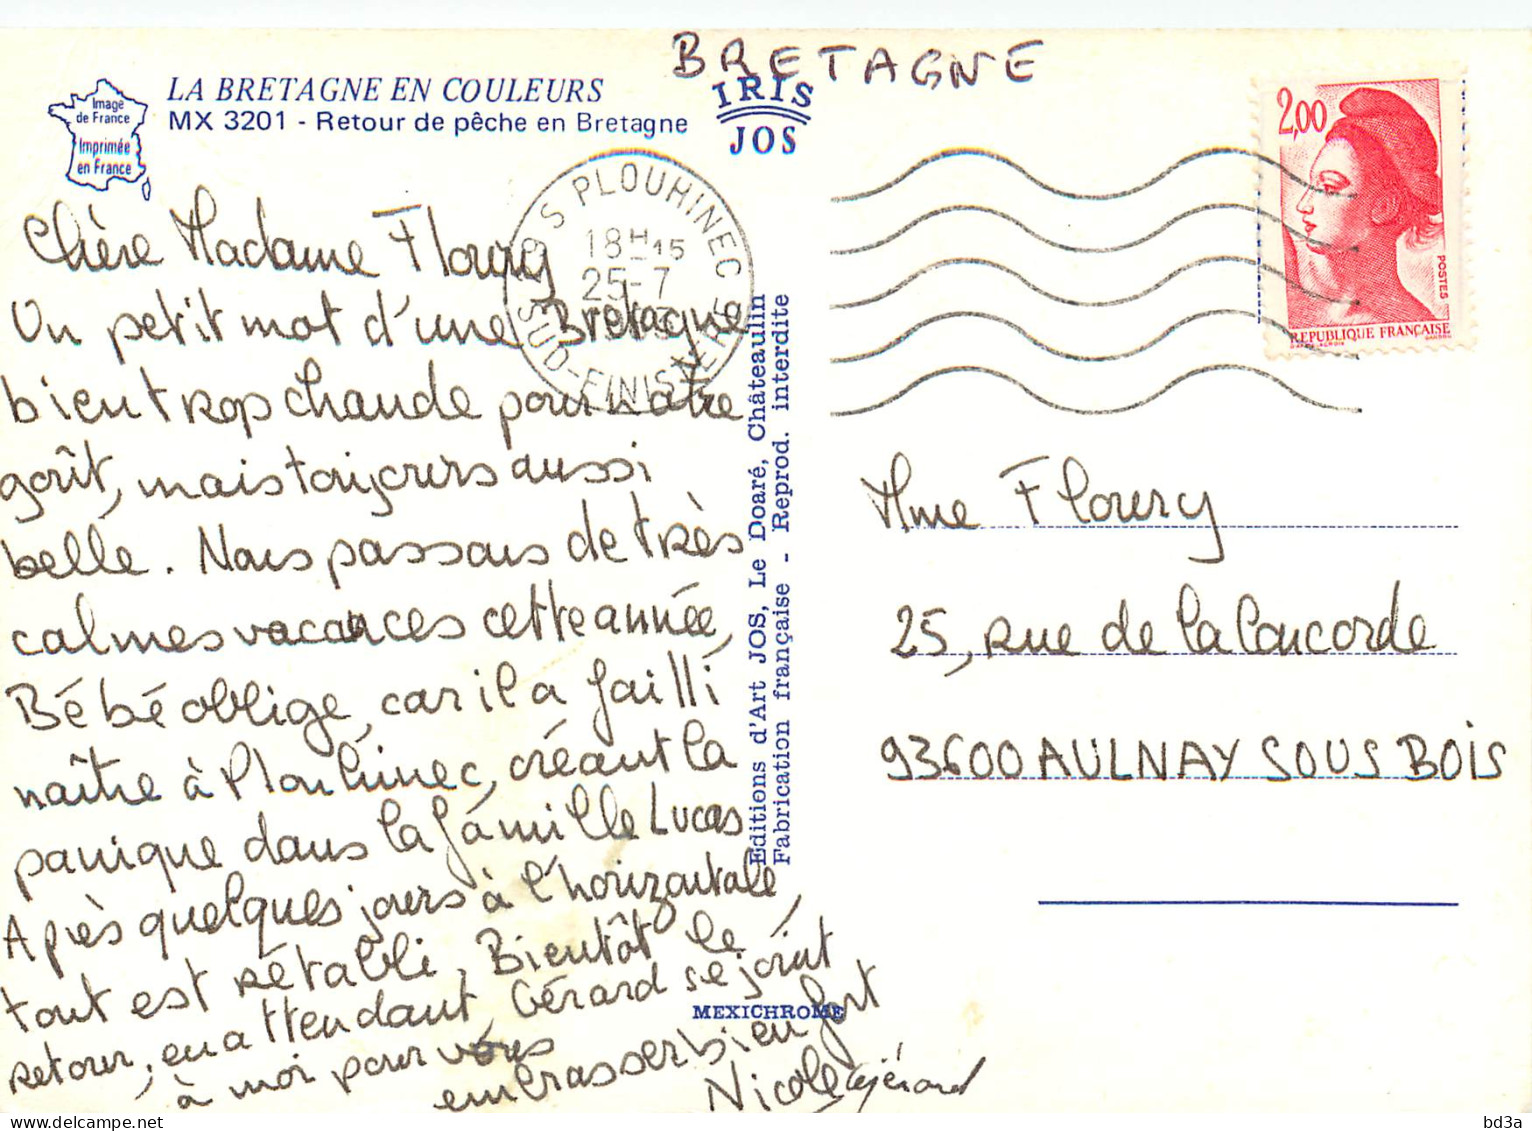 BRETAGNE
LA BRETAGNE EN COULEURS
MX 3201 - Retour de pêche en Bretagne
Image
de France
Imprimée
en France
IRIS
JOS
2,00
POSTES
REPUBLIQUE FRANÇAISE
S PLOUHINEC
18H15
25-7
SUD-FINISTERE
Chère Madame Floury
Un petit mot d'une Bretagne
bien trop chaude pour notre
goût, mais toujours aussi
belle. Nous passons de très
calmes vacances cette année,
Bébé oblige, car il a failli
naître à Plouhinec, créant la
panique dans la famille Lucas
Après quelques jours à l'horizontale,
tout est rétabli, Bientôt le
retour, en attendant, Gérard se joint
à moi pour vous
embrasser bien fort
Nicole Gérard
Editions d'Art JOS, Le Doaré, Châteaulin
Fabrication française - Reprod. interdite
MEXICHROME
Mme Floury
25, rue de la Concorde
93600 AULNAY SOUS BOIS
bd3a